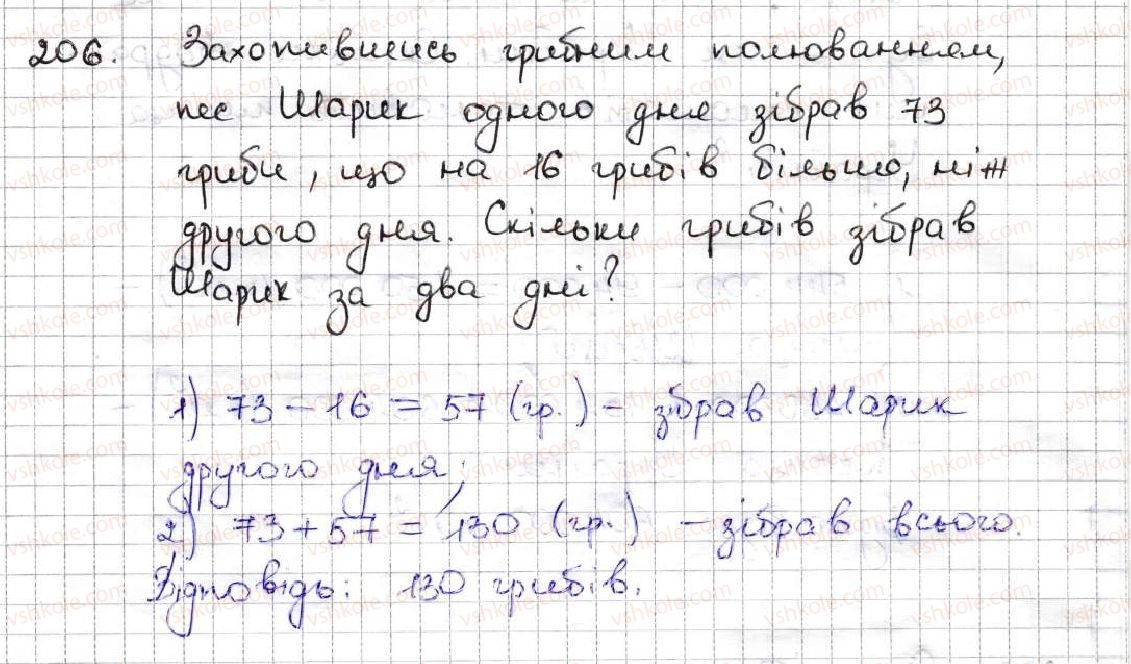 206. Захопившись грибним полюванням,
пес Шарик одного дня зібрав 73
гриби, що на 16 грибів більше, ніж
другого дня. Скільки грибів зібрав
Шарик за два дні?
1) 73 – 16 = 57 (гр.) – зібрав Шарик
другого дня;
2) 73 + 57 = 130 (гр.) – зібрав всього.
Відповідь: 130 грибів.